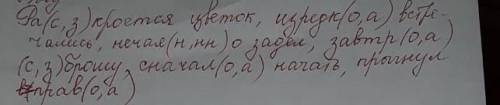 Ра(с,з)кроется цветок, изредк(о,а) встре-
чались, нечая(н,нн)о задел, завтр(о,а)
(с,з)брошу, сначал(о,а) начать, прогнул
вправ(о,а)